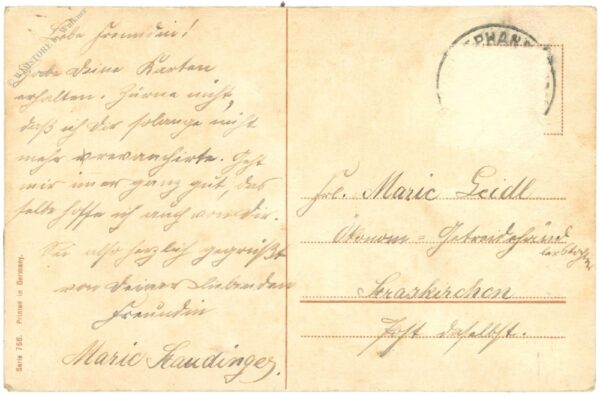 Liebe Freundin!
Habe Deine Karten
erhalten. Zürne nicht,
daß ich Dir solange nicht
mehr revanchirte. Geht
mir immer ganz gut, das
selbe hoffe ich auch von Dir.
Sei also herzlich gegrüßt
von Deiner liebenden
Freundin
Marie Staudinger.
Serie 756. Printed in Germany.
EPHANS
Frl. Marie Leidl
Ökonom = Getreidehänd
lerstochter
Straskirchen
Post daselbst.